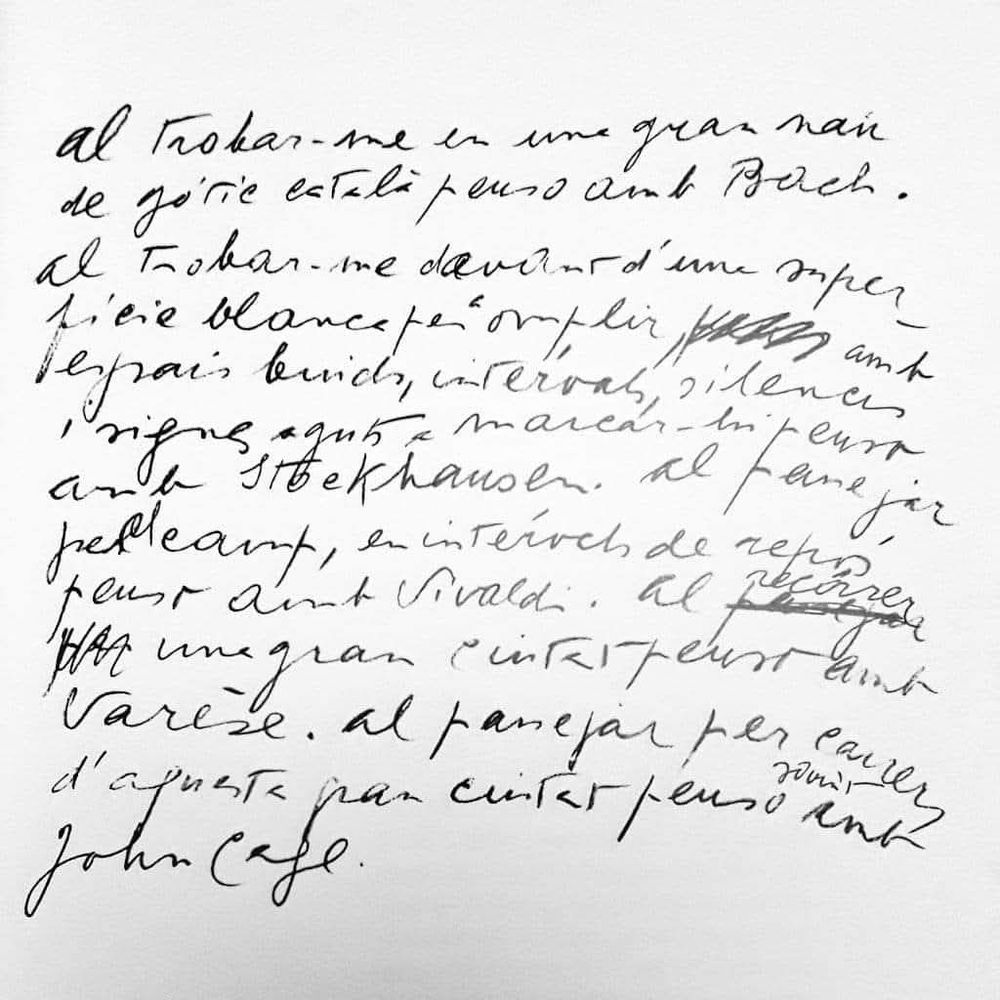 al trobar-me en una gran nau
de gótic català penso amb Bach.
al trobar-me davant d'una super-
fície blanca per a omplir amb
espais buids, intérvals, silencis
i signes aguts a marcar-hi penso
amb Stockhausen. al passejar
pel camp, en intérvals de repós,
penso amb Vivaldi. al recórrer
una gran ciutat penso amb
Varèse. al passejar per carrers
d'aquesta gran ciutat penso sovint amb
John Cage.